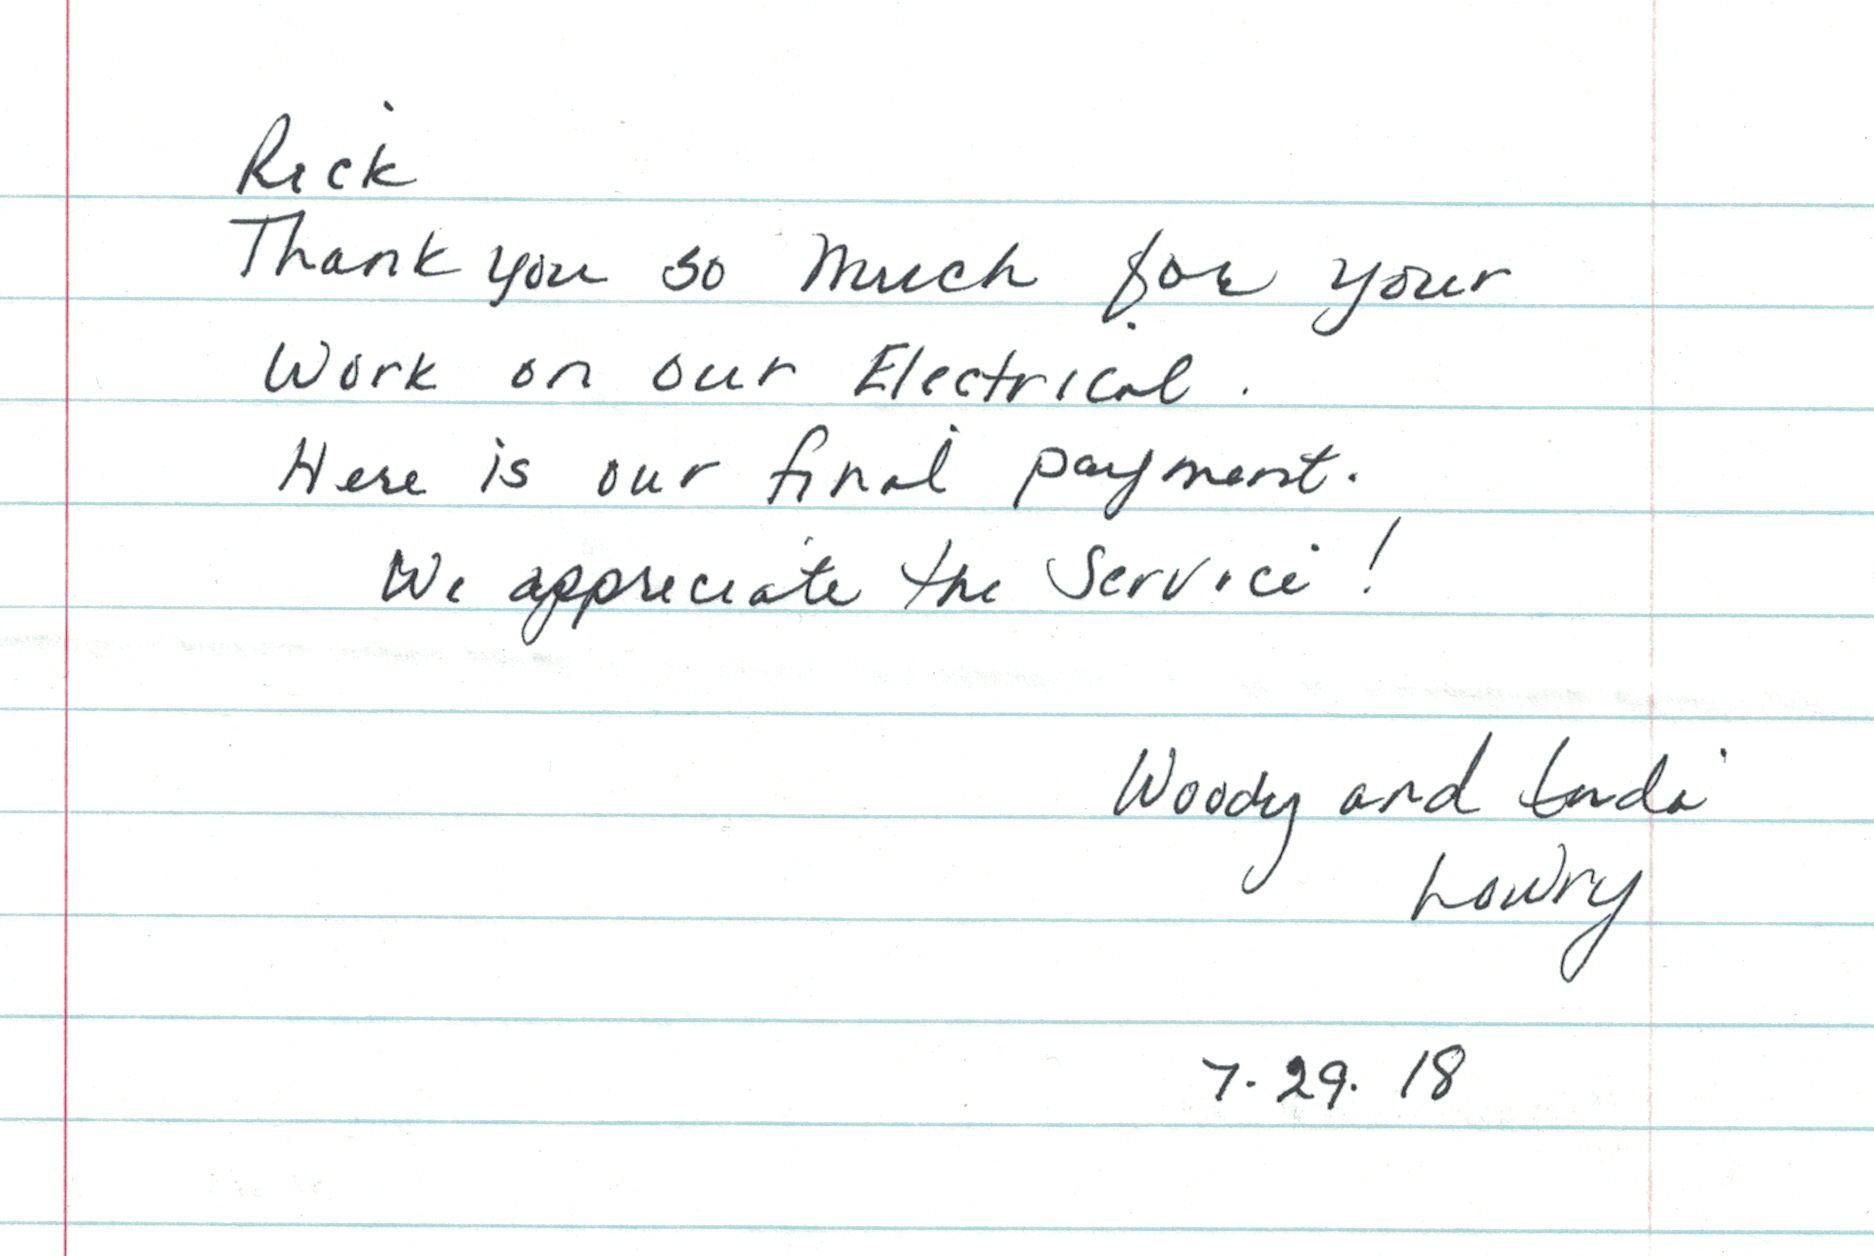 Rick
Thank you so Much for your
Work on our Electrical.
Here is our final payment.
We appreciate the Service!
Woody and
Lowry
7.29.18